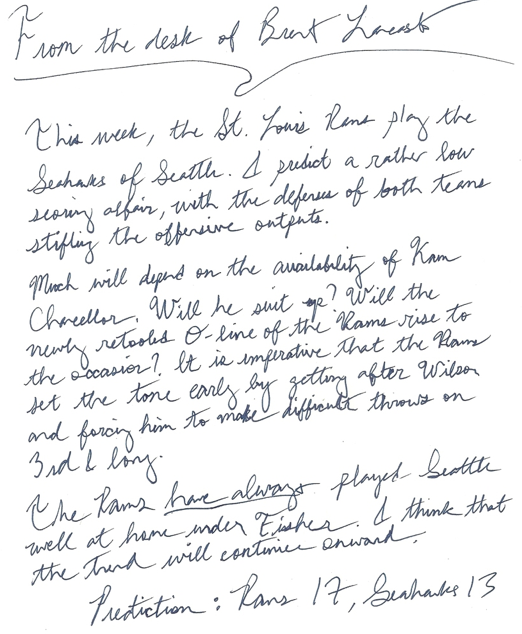 From the desk of Brent Lancaste
This week, the St. Louis Rams play the
Seahawks of Seattle. I predict a rather low
scoring affair, with the defenses of both teams
stifling the offensive outputs.
Much will depend on the availability of Kam
Chancellor. Will he suit up? Will the
newly retooled O-line of the Rams rise to
the occasion? It is imperative that the Rams
set the tone early by getting after Wilson
and forcing him to make difficult throws on
3rd & long.
The Rams have always played Seattle
well at home under Fisher. I think that
the trend will continue onward.
Prediction: Rams 17, Seahawks 13